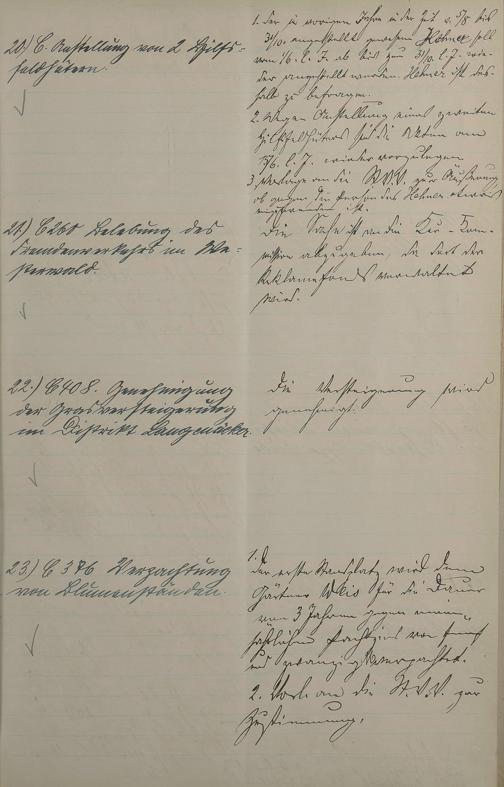 20) C. Anstellung von 2 Hilfs=
feldhütern.
1. Der im vorigen Jahre in der Zeit v. 5/8 bis
31/10. angestellt gewesene Hohner soll
vom 16. l. J. ab bis zum 31/10. l. J. wie=
der angestellt werden. Hohner ist des=
halb zu befragen.
2. Wegen Anstellung eines zweiten
Hilfsfeldhüters sind die Akten am
l. J. wieder vorzulegen.
3. Vorlage an die St.V.V. zur Äußerung
ob gegen die Person des Hohner etwas
einzuwenden ist.
21) C260 Belebung des
Fremdenverkehrs im We=
sterwald.
Die Sache ist an die Kur-Kom=
mission abzugeben, da dort der
Reklamefonds verwaltet
wird.
22.) C408. Genehmigung
der Grasversteigerung
im Distrikt Langenäcker.
Die Versteigerung wird
genehmigt.
23) C 376 Verpachtung
von Blumenständen.
1.
Der erste Standplatz wird dem
Gärtner Weis für die Dauer
von 3 Jahren gegen einen
jährlichen Pachtzins von fünf
und zwanzig M verpachtet.
2. Vorl. an die St.V.V. zur
Zustimmung.